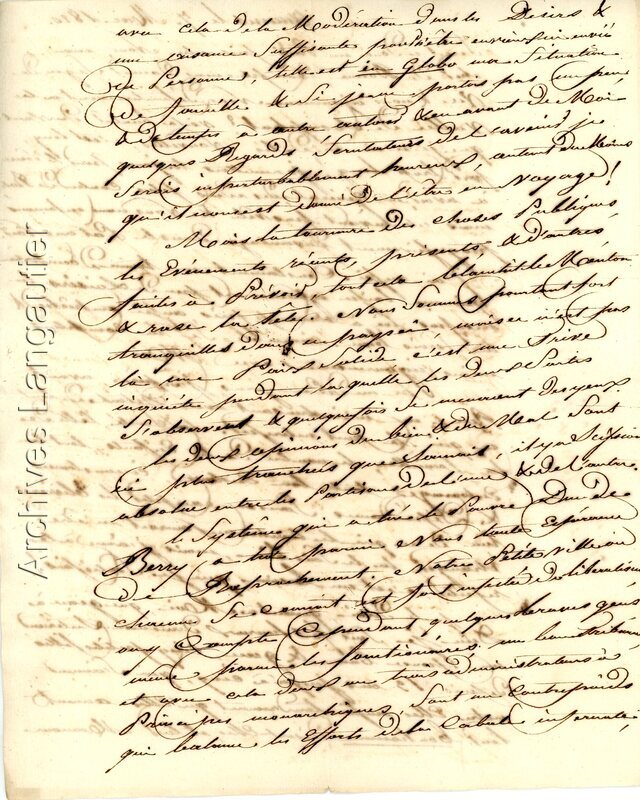 avec cela de la Modération dans les Désirs &
une aisance Suffisante pour n'être envieux ni envié
de Personne, telle est en Globo ma Situation
de famille & Si je ne portois pas un peu
& de temps a autre autour & en avant de Moi
quelques Regards Scrutateurs de l'avenir, je
Serois imperturbablement heureux, autant du Moins
qu'il nous est donné de l'être en Voyage!
Mais la tournure des choses Publiques
les Evénements récents, présents & d'autres
faciles a Prévoir, tout cela le Menton
& rase la tete. Nous Sommes pourtant fort
tranquilles dans ce pays ci, mais ce n'est pas
là une Paix Solide c'est une Trève
inquiète pendant laquelle les deux Partis
S'observent & quelquefois Se mesurent des yeux.
les deux opinions du bien & du Mal Sont
ici plus tranchées que Jamais, il y a Scission
absolue entre les Partisans de l'une & de l'autre.
le Système qui a tué le Pauvre Duc de
Berry a tué parmi Nous toute Espérance
de Rapprochement. Notre Petite Ville ou
chacun Se connait est fort infectée de libéralisme
Cependant quelques braves gens
même parmi les fonctionnaires
et avec cela deux ou trois administrateurs à
Principes monarchiques, Sont un Contrepoids
qui balance les Efforts de la Cabale infernale,
Archives Langautier